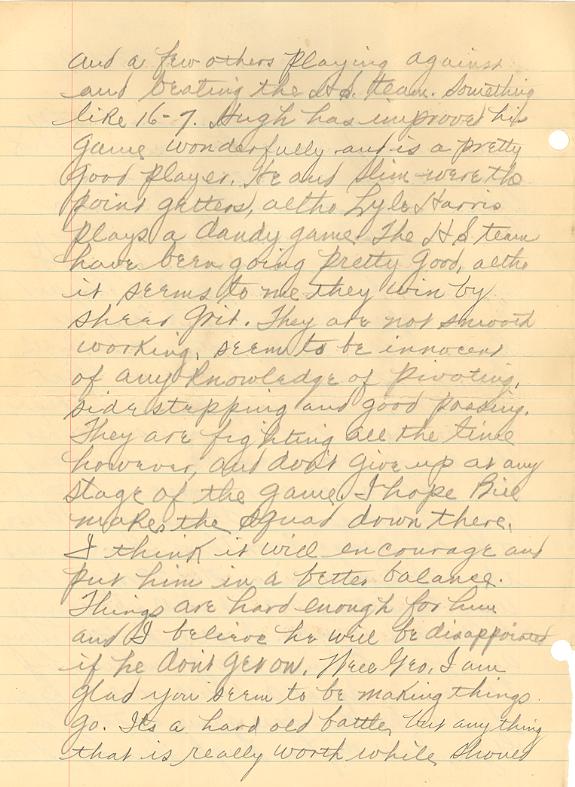 and a few others playing against
and beating the H.S. team. Something
like 16-7. Hugh has improved his
game wonderfully and is a pretty
good player. He and Slim were the
point getters, altho Lyle Harris
plays a dandy game. The H.S. team
have been going pretty good, altho
it seems to me they win by
sheer grit. They are not smooth
working, seem to be innocent
of any knowledge of pivoting,
side stepping and good passing.
They are fighting all the time
however, and don't give up at any
stage of the game. I hope Bill
makes the squad down there.
I think it will encourage and
put him in a better balance.
Things are hard enough for him
and I believe he will be disappointed
if he don't get on. Well Geo, I am
glad you seem to be making things
go. Its a hard old battle, but anything
that is really worth while should